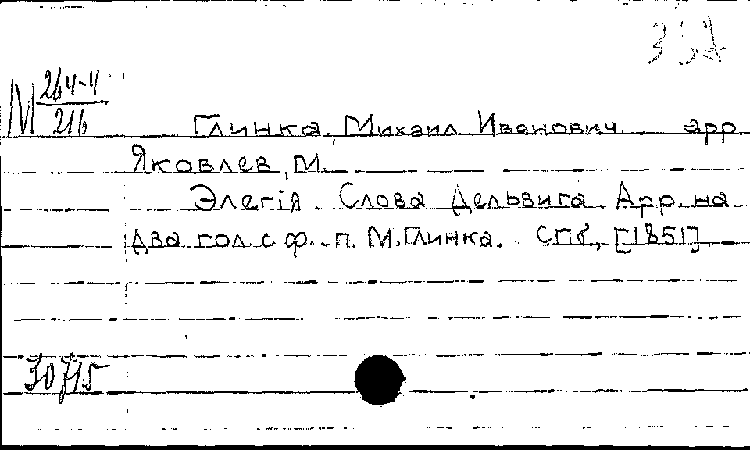 M 264-4
216
Глинка, Михаил Иванович арр.
Яковлев, М.
Элегія. Слова Дельвига. Арр. на
два гол. с ф.-п. М. Глинка. СПб., [1851]
30715